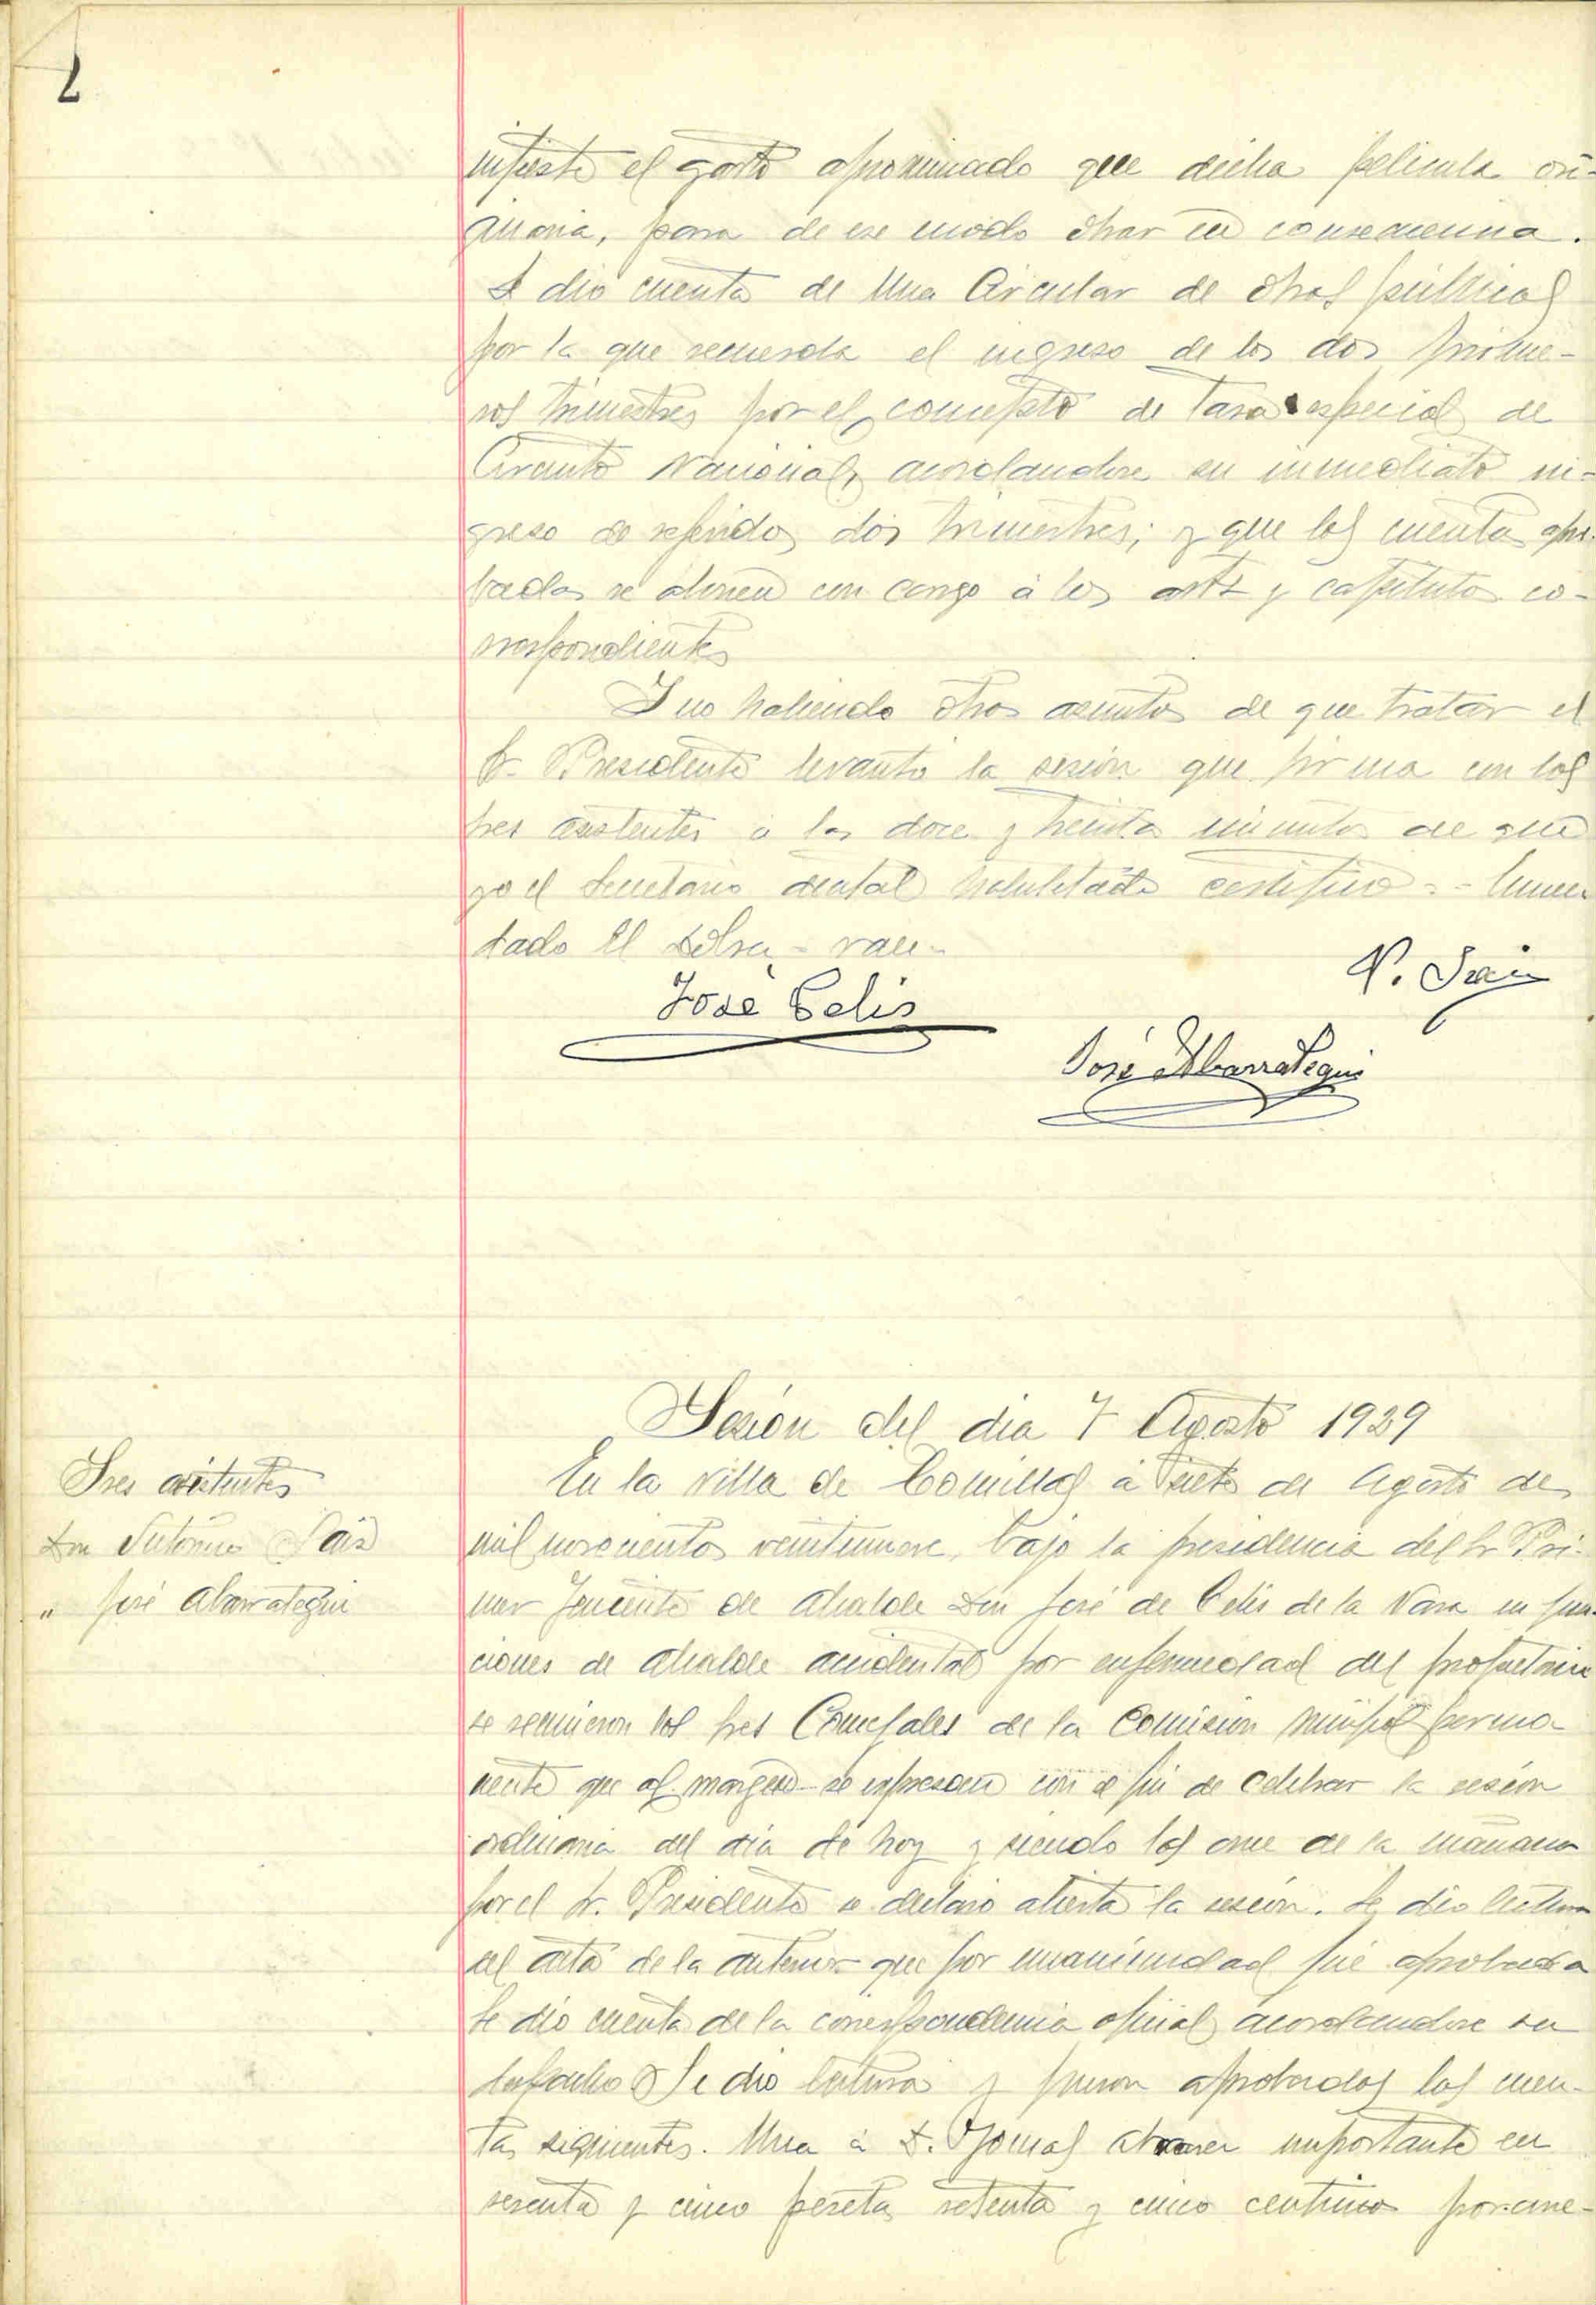 2
nifieste el gasto aproximado que dicha pelicula ori-
ginaria, para de ese modo obrar en consecuencia.
Se dió cuenta de una Circular de Obras públicas
por la que recuerda el ingreso de los dos prime-
ros trimestres por el concepto de Tasa especial de
Circuito Nacional, acordandose su inmediato in-
greso de referidos dos trimestres; y que las cuentas apro-
badas se abonen con cargo á los artº y capitulos co-
rrespondientes
Y no habiendo otros asuntos de que tratar el
Sr. Presidente levantó la sesión que firma con los
Sres asistentes á las doce y treinta minutos de que
yo el Secretario habilitado certifico = - Enmen
dado El - vale -
V. Sai
José Celis
José Abarrategui
Sesión del dia 7 Agosto 1929
Sres asistentes
Don Saiz
" José Abarrategui
En la villa de Comillas á siete de Agosto de
mil novecientos veintinueve, bajo la presidencia del Sr Pri-
mer Teniente de Alcalde Don José de Celis de la Vara en fun-
ciones de Alcalde accidental por enfermedad del propietario
se reunieron los Sres Concejales de la Comision Municipal perma-
nente que al margen se expresan con el fin de celebrar la sesión
ordinaria del dia de hoy y siendo las once de la mañana
por el Sr. Presidente se declaró abierta la sesión. Se dio lectura
al acta de la anterior que por unanimidad fué aprobada
Se dio cuenta de la correspondencia oficial acordandose su
despacho Se dio lectura y fueron aprobadas las cuen-
tas siguientes. Una á D. Tomas importante en
sesenta y cinco pesetas setenta y cinco centimos por